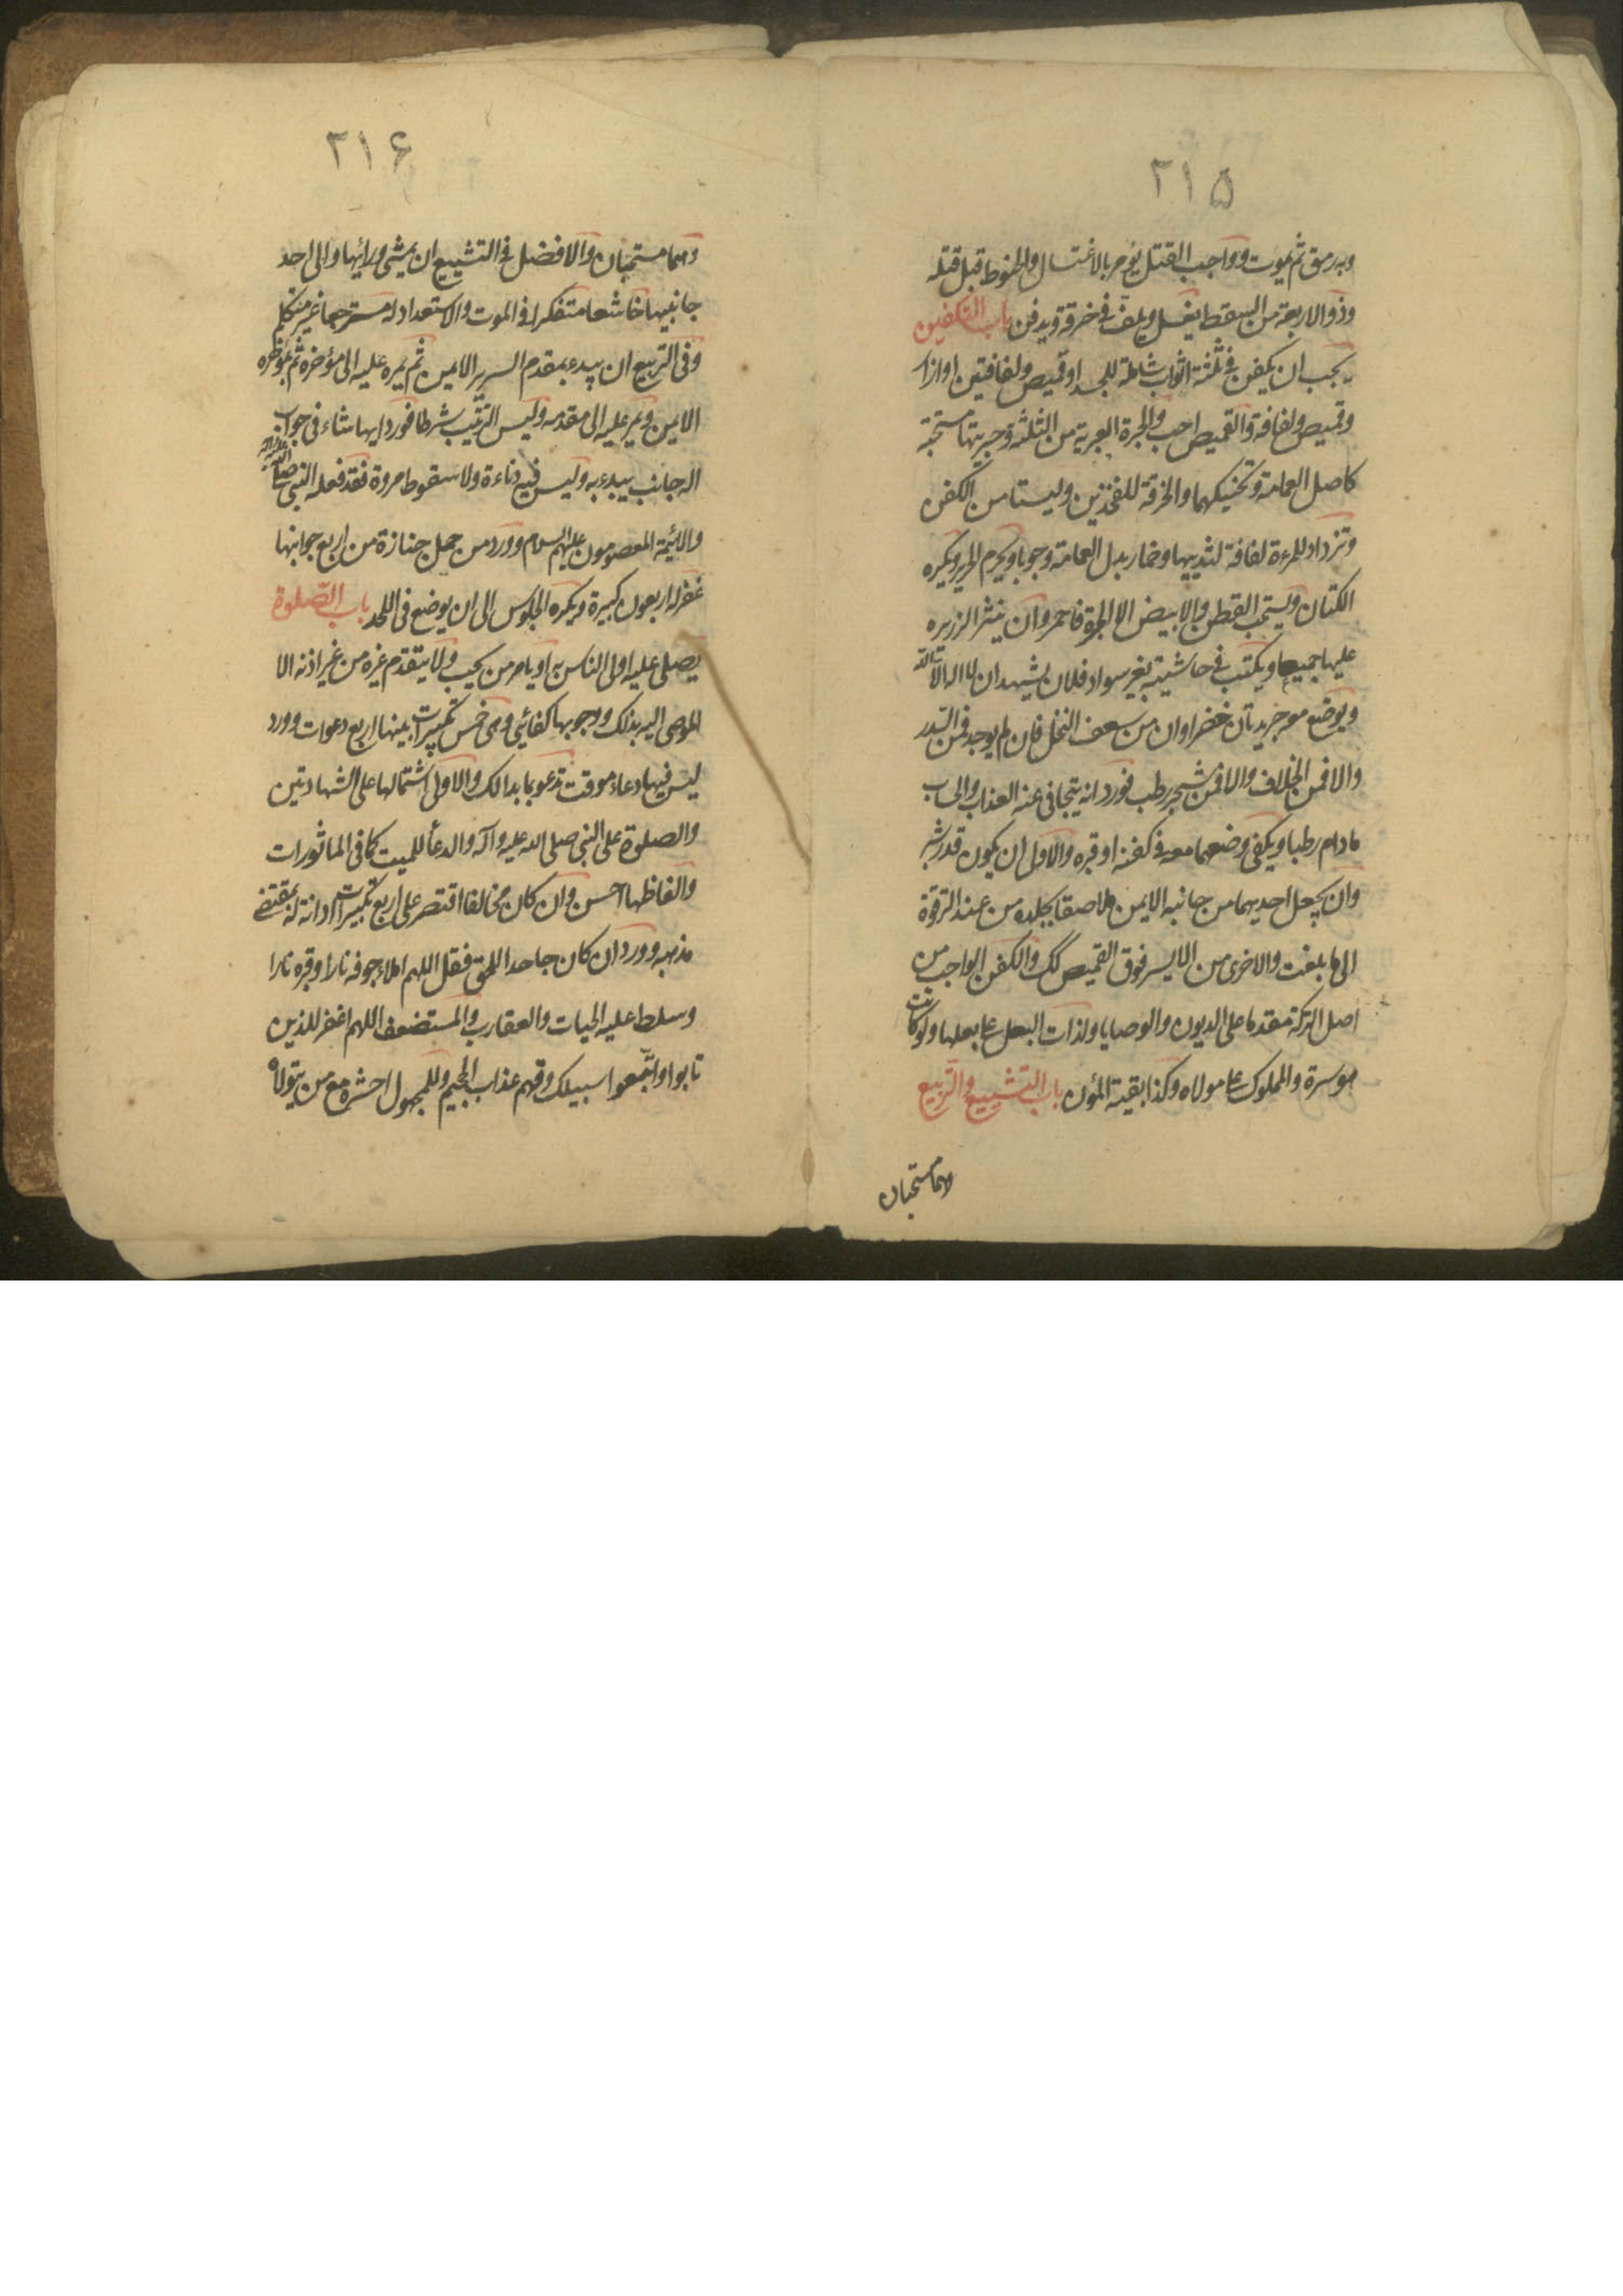 ۲۱۵
وبه رمق ثم يموت وواجب القتل يؤمر بالاغتسال والحنوط قبل قتله
وذو الاربعة من السقط يغسل ويلف في خرقة ويدفن باب التكفين
يجب ان يكفن في ثلثة اثواب شاملة للجسد او قميص ولفافتين او ازار
وقميص ولفافة والقميص احب والحبرة العبرية من الثلثة وحبريتها مستحبة
كاصل العمامة وتحنيكهما والخرقة للفخذين وليستا من الكفن
وتزداد للمرءة لفافة لثدييها وخمار بدل العمامة وجوبا ويحرم الحرير ويكره
الكتان ويستحب القطن والابيض الا الحبرة فاحمر وان ينثر الزريره
عليها جميعا ويكتب في حاشيته بغير سواد فلان يشهد ان لا اله الا الله
ويوضع معه جريدتان خضراوان من سعف النخل فان لم يوجد فمن السدر
والا فمن الخلاف والا فمن شجر رطب فورد انه يتجافى عنه العذاب والحساب
مادام رطبا ويكفى وضعهما معه في كفنه او قبره والاولى ان يكون قدر شبر
وان يجعل احديهما من جانبه الايمن ملاصقا بجلده من عند الترقوة
الى ما بلغت والاخرى من الايسر فوق القميص كك والكفن الواجب من
اصل التركة مقدما على الديون والوصايا ولذات البعل على بعلها ولو كانت
موسرة والمملوك على مولاه وكذا بقية المؤن باب التشييع والتربيع
وهما مستحبان
۲۱۶
وهما مستحبان والافضل في التشييع ان يمشى ورائها والى احد
جانبيها خاشعا متفكرا في الموت والاستعداد له مسترجعا غير متكلم
وفى التربيع ان يبدء بمقدم السرير الايمن ثم يمره عليه الى مؤخره ثم بمؤخره
الايمن ويمر عليه الى مقدمه وليس الترتيب شرطا فورد ايها شاء فى جواب
اله جانب يبدء به وليس فيه دناءة ولا سقوط مروة فقد فعله النبي صلى الله عليه وآله
والائيمة المعصومون عليهم السلام وورد من حمل جنازة من اربع جوانبها
غفر له اربعون كبيرة ويكره الجلوس الى ان يوضع فى اللحد باب الصلوة
يصلى عليه اولى الناس به او يامر من يحب ولا يتقدم غيره من غير اذنه الا
الموصى اليه بذلك ووجوبها كفائي وهى خمس تكبيرات بينها اربع دعوات وورد
ليس فيها دعاء موقت تدعو بما بدا لك والاولى اشتمالها على الشهادتين
والصلوة على النبي صلى الله عليه وآله والدعأ للميت كما فى الماثورات
والفاظها احسن وان كان مخالفا اقتصر على اربع تكبيرات ادانة له بمقتضى
مذهبه وورد ان كان جاحدا للحق فقل اللهم املاء جوفه نارا وقبره نارا
وسلط عليه الحيات والعقارب والمستضعف اللهم اغفر للذين
تابوا واتبعوا سبيلك وقهم عذاب الجحيم وللمجهول احشره مع من يتولاه